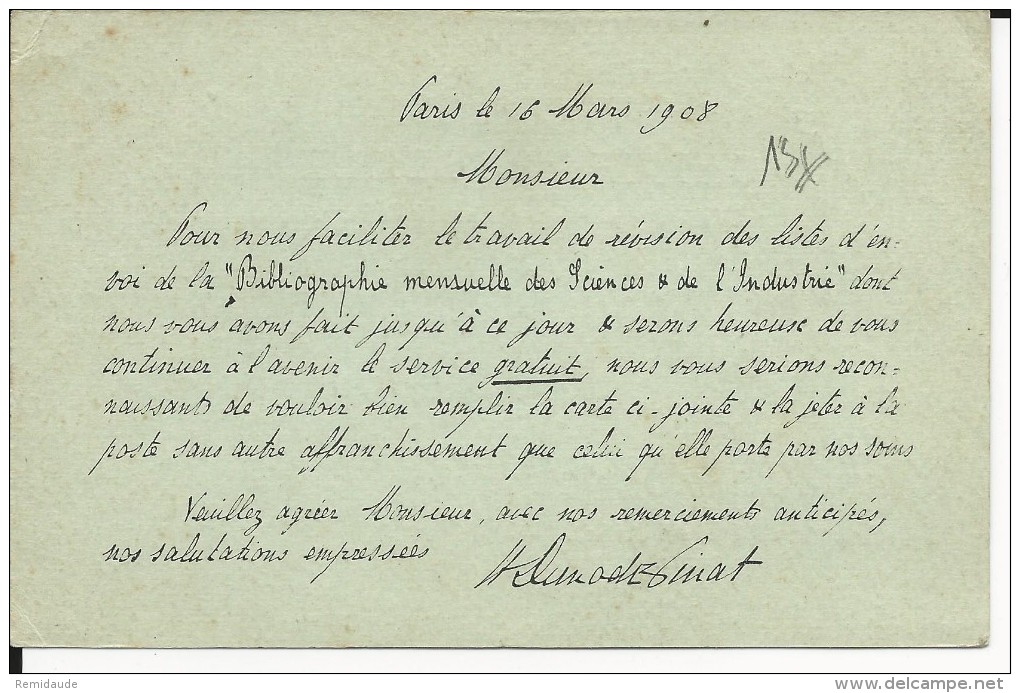 Paris le 16 Mars 1908
Monsieur
Pour nous faciliter le travail de révision des listes d'en-
voi de la "Bibliographie mensuelle des Sciences & de l'Industrie" dont
nous vous avons fait jusqu'à ce jour & serons heureux de vous
continuer à l'avenir le service gratuit, nous vous serions recon-
naissants de vouloir bien remplir la carte ci-jointe & la jeter à la
poste sans autre affranchissement que celui qu'elle porte par nos soins
Veuillez agréer Monsieur, avec nos remerciements anticipés,
nos salutations empressées
H Dunod & E Pinat
Remidaude
delcampe.net